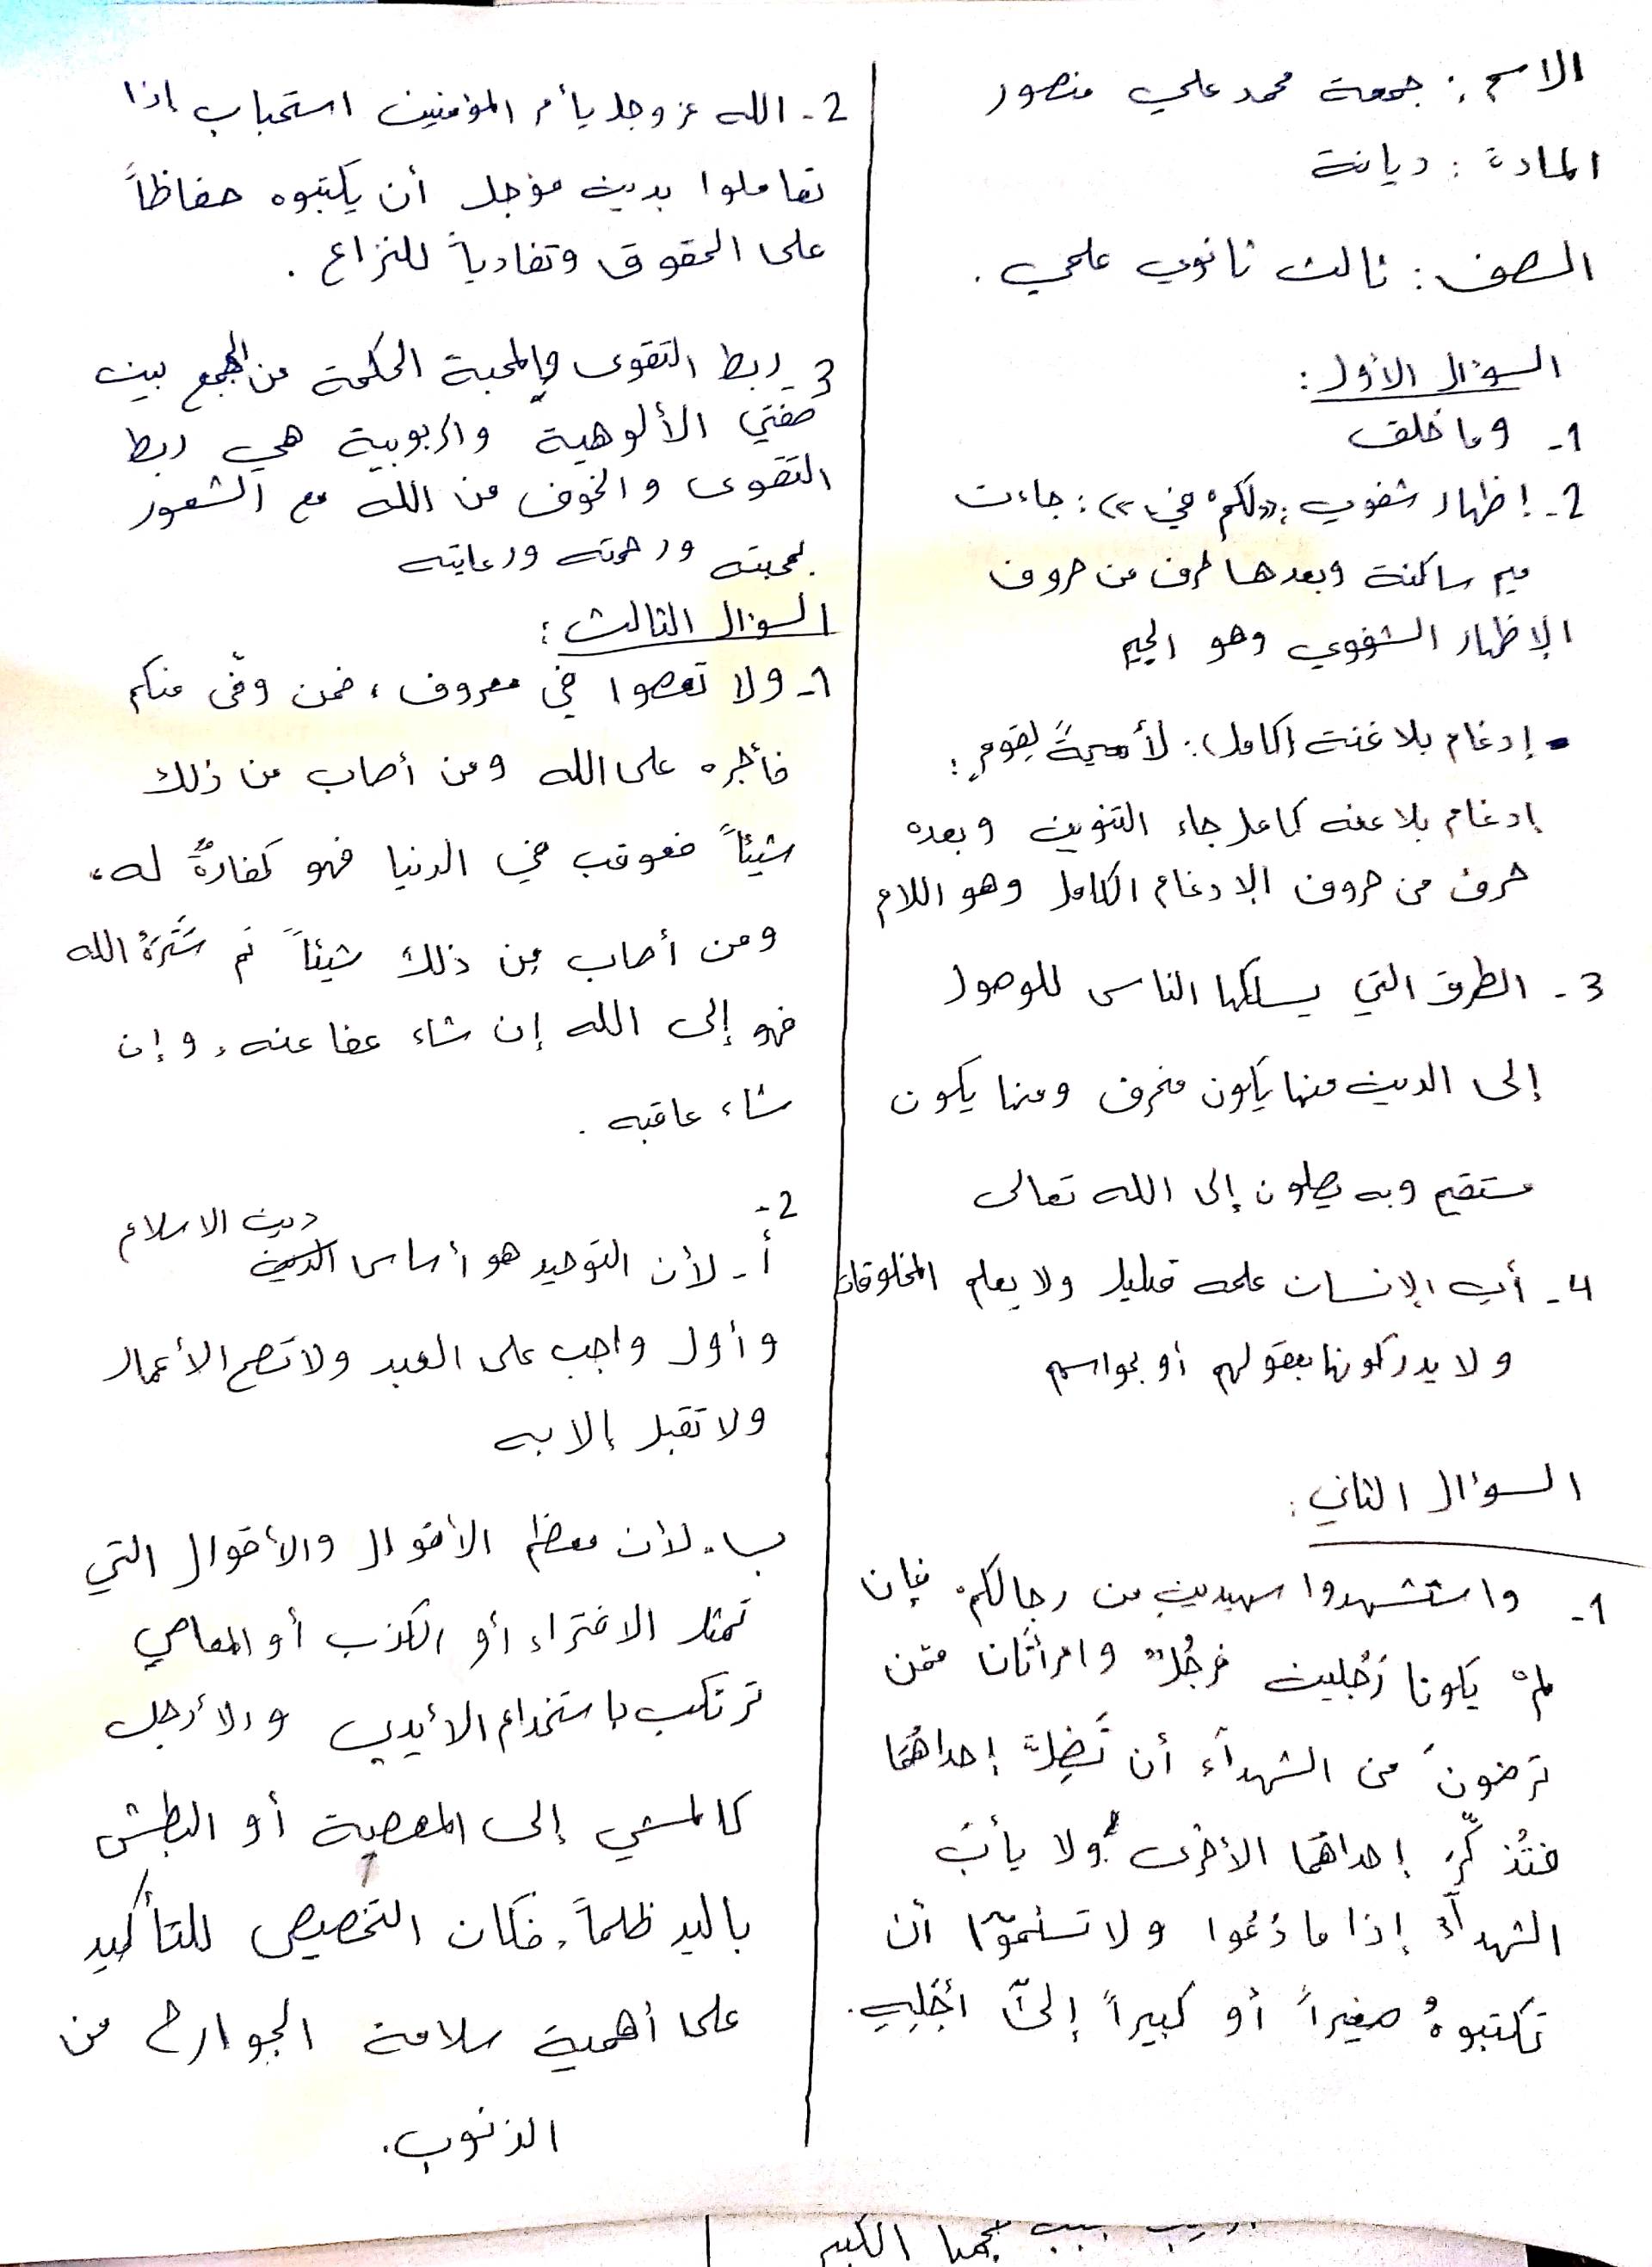 الاسم : جمعة محمد علي منصور
المادة : ديانة
الصف : ثالث ثانوي علمي .
السؤال الأول :
1- وما خلق
2- إظهار شفوي : «لكمْ في» : جاءت
ميم ساكنة وبعدها حرف من حروف
الإظهار الشفوي وهو الجيم
- إدغام بلا غنة (كامل) : لقومٍ :
إدغام بلا عنه كامل جاء التنوين وبعده
حرف من حروف الإدغام الكامل وهو اللام
3- الطرق التي يسلكها الناس للوصول
إلى الدين منها يكون منحرف ومنها يكون
مستقيم وبه يصلون إلى الله تعالى
4- أي الإنسان علمه قليل ولا يعلم المخلوقات
ولا يدركونها بعقولهم أو بحواسهم
السؤال الثاني :
1- واستشهدوا شهيدين من رجالكمْ فإن
لمْ يكونا رَجُلين فرجُلٌ وامرأتان ممّن
ترضونَ من الشهدآء أن تَضِلَّ إحداهُمَا
فتُذكِّرَ إحداهُمَا الأخرى ولا يأبَ
الشهدآءُ إذا ما دُعُوا ولا تسئموٓا أن
تكتبوهُ صغيراً أو كبيراً إلىٓ أجَلِهِ .
2- الله عز وجل يأمر المؤمنين استحباب إذا
تعاملوا بدين مؤجل أن يكتبوه حفاظاً
على الحقوق وتفادياً للنزاع .
3- ربط التقوى والمحبة الحكمة من الجمع بين
صفتي الألوهية والربوبية هي ربط
التقوى والخوف من الله مع الشعور
بمحبته ورحمته ورعايته
السؤال الثالث :
1- ولا تعصوا في معروف ، فمن وفّى منكم
فأجره على الله ومن أصاب من ذلك
شيئاً فعوقب في الدنيا فهو كفارةٌ له ،
ومن أصاب من ذلك شيئاً ثم سَتَرَهُ الله
فهو إلى الله إن شاء عفا عنه ، وإن
شاء عاقبه .
2-
أ- لأن التوحيد هو أساس دين الاسلام
وأول واجب على العبد ولا تصح الأعمال
ولا تقبل إلا به
ب- لأن معظم الأفوال والأقوال التي
تمثل الافتراء أو الكذب أو المعاصي
ترتكب باستخدام الأيدي والأرجل
كالمشي إلى المعصية أو البطش
باليد ظلماً ، فكان التخصيص للتأكيد
على أهمية سلامة الجوارح من
الذنوب .
الكبير